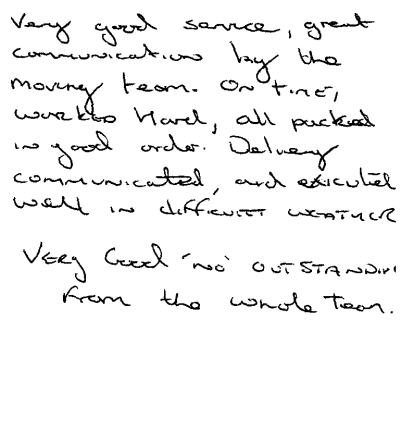 Very good service, great
communication by the
moving team. ON TIME,
worked Hard, all packed
in good order. Delivery
communicated, and executed
well IN DIFFICULT WEATHER
VERY Good 'NO' OUTSTANDIN
From the whole Team.